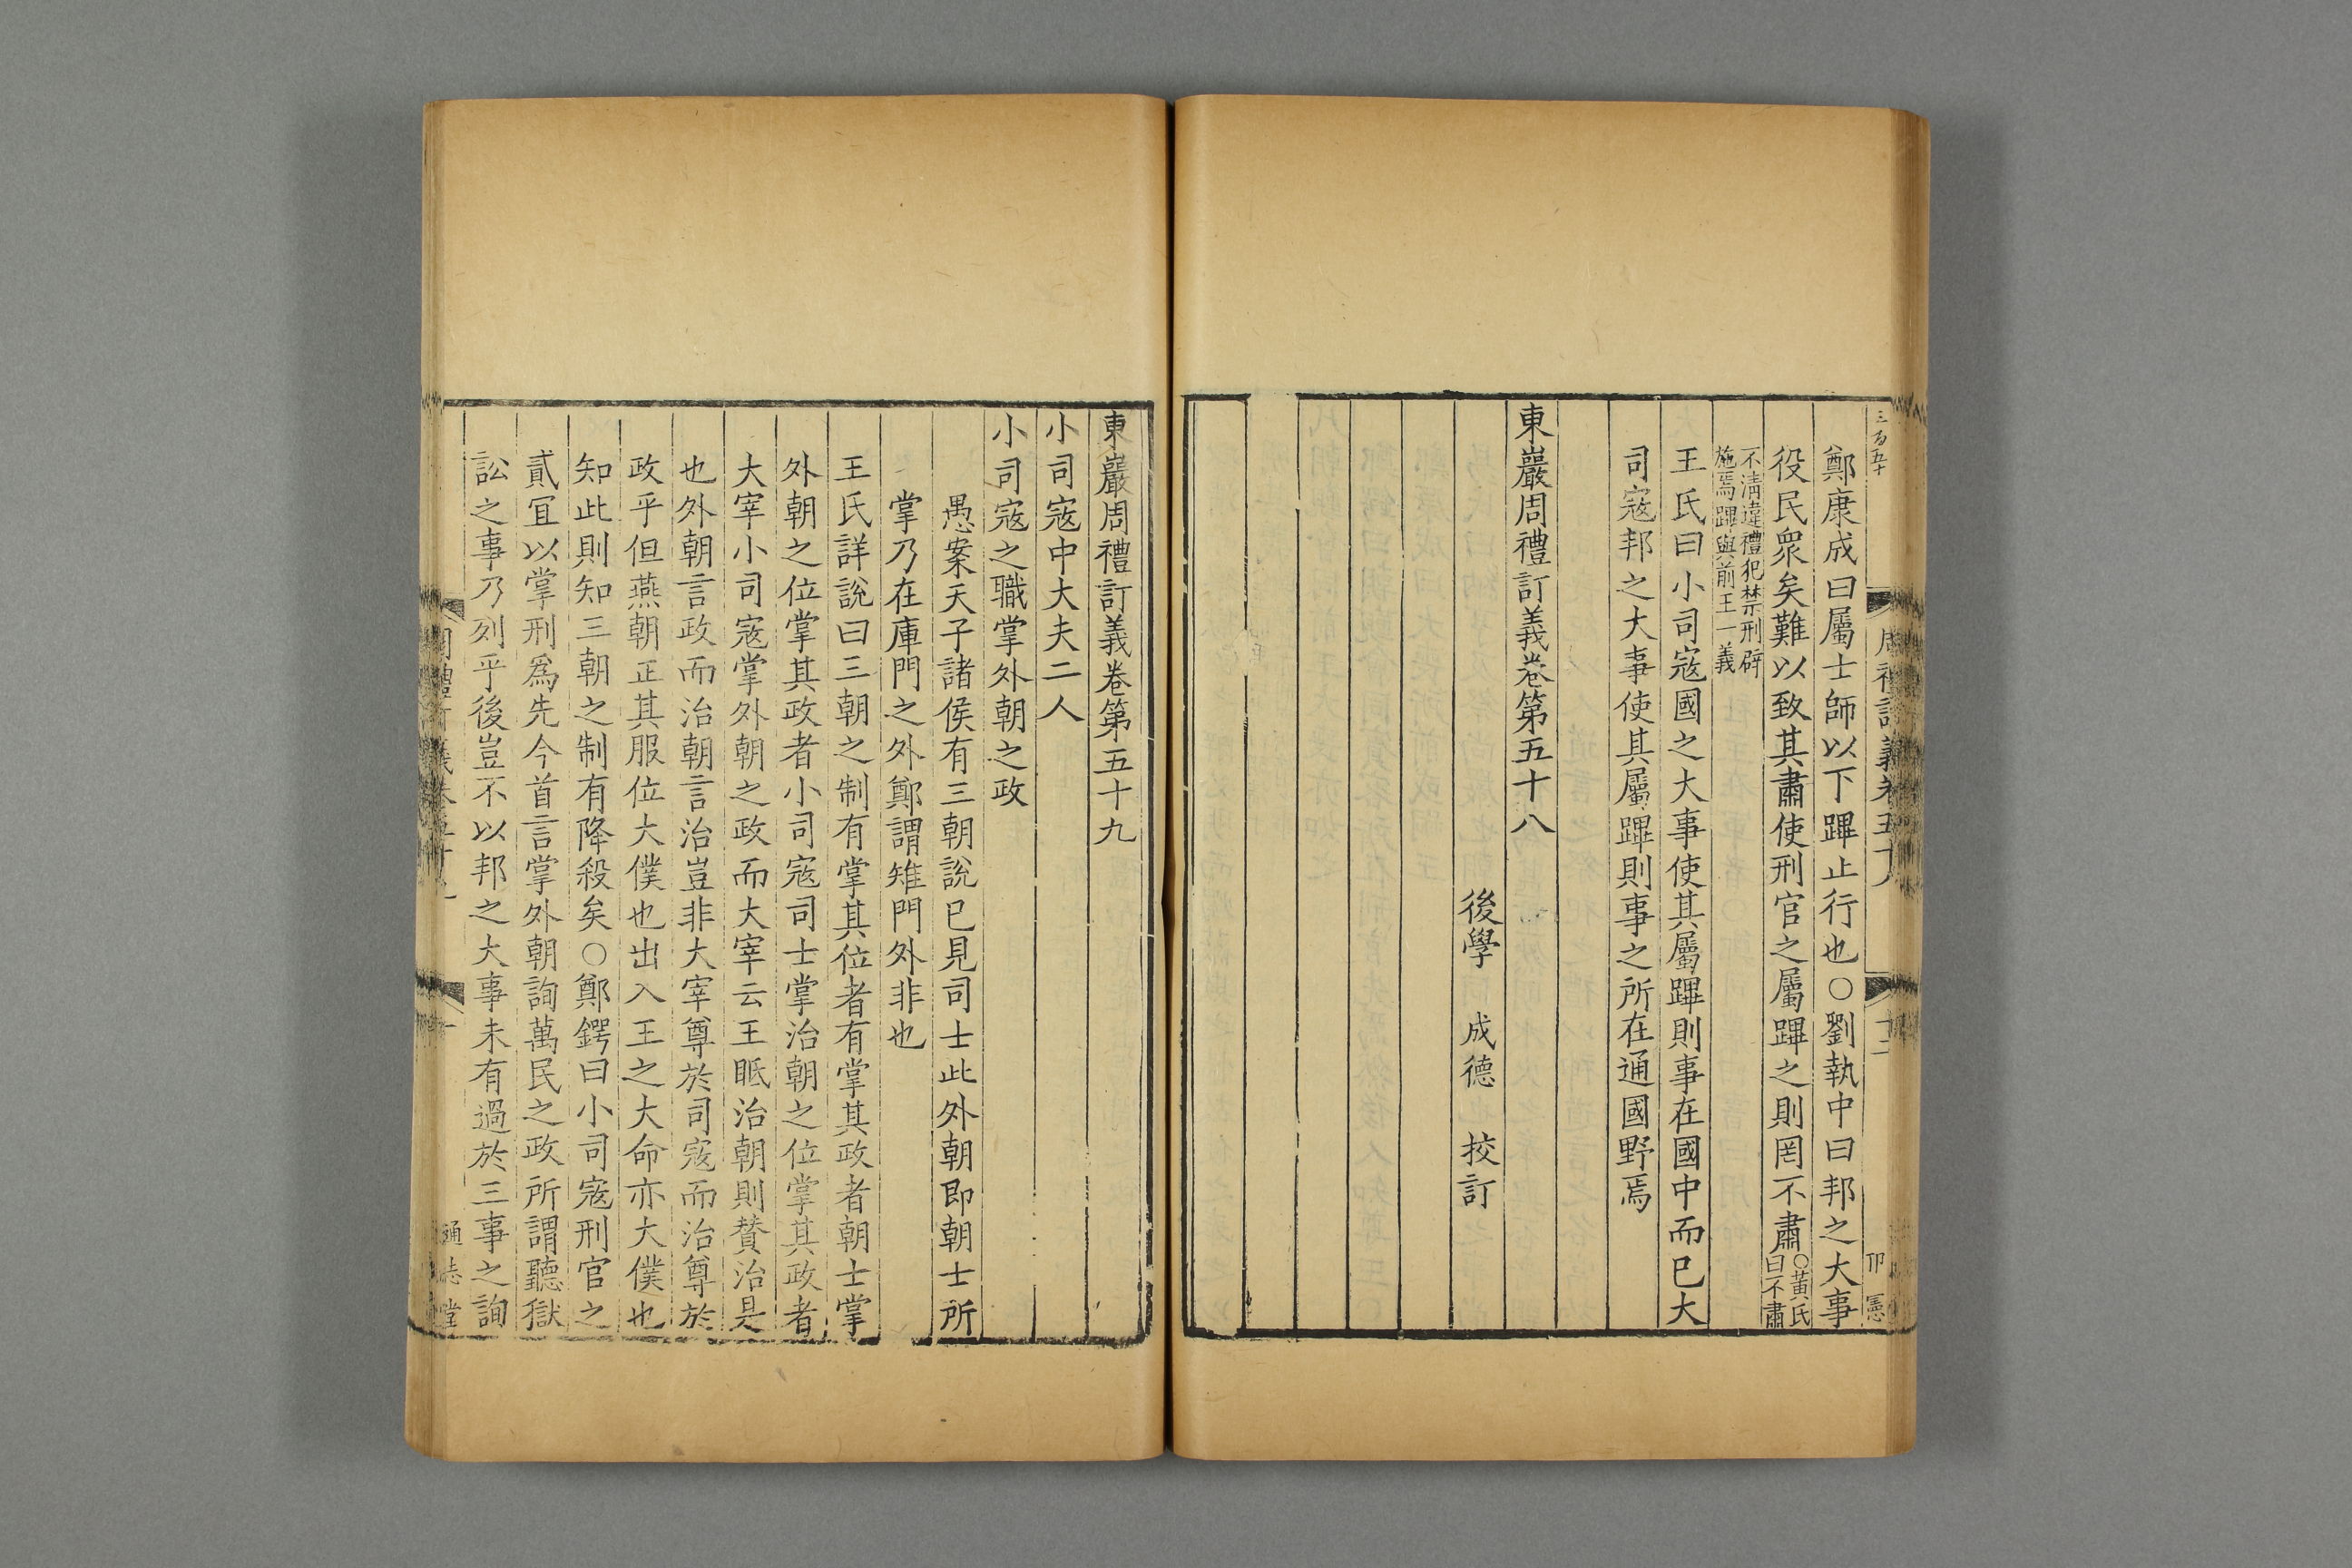 三百五十
周禮訂義卷五十八
十二
卬 憲
鄭康成曰屬士師以下蹕止行也○劉執中曰邦之大事
役民衆矣難以致其肅使刑官之屬蹕之則罔不肅○黃氏曰不肅
不淸違禮犯禁刑辟
施焉蹕與前王一義
王氏曰小司寇國之大事使其屬蹕則事在國中而已大
司寇邦之大事使其屬蹕則事之所在通國野焉
東巖周禮訂義卷第五十八
後學 成德 挍訂
東巖周禮訂義卷第五十九
小司寇中大夫二人
小司寇之職掌外朝之政
愚案天子諸侯有三朝說已見司士此外朝即朝士所
掌乃在庫門之外鄭謂雉門外非也
王氏詳說曰三朝之制有掌其位者有掌其政者朝士掌
外朝之位掌其政者小司寇司士掌治朝之位掌其政者
大宰小司寇掌外朝之政而大宰云王眡治朝則賛治是
也外朝言政而治朝言治豈非大宰尊於司寇而治尊於
政乎但燕朝正其服位大僕也出入王之大命亦大僕也
知此則知三朝之制有降殺矣○鄭鍔曰小司寇刑官之
貳宜以掌刑爲先今首言掌外朝詢萬民之政所謂聽獄
訟之事乃列乎後豈不以邦之大事未有過於三事之詢
通志堂